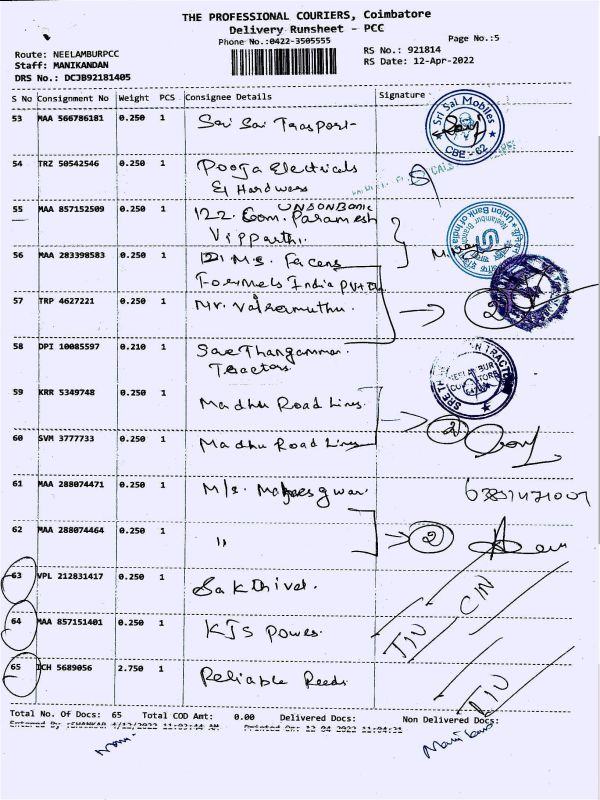 THE PROFESSIONAL COURIERS, Coimbatore
Delivery Runsheet - PCC
Phone No.:0422-3505555
Page No.:5
Route: NEELAMBURPCC
Staff: MANIKANDAN
DRS No.: DCJB92181405
RS No.: 921814
RS Date: 12-Apr-2022
S No Consignment No Weight PCS Consignee Details Signature
53 MAA 566786181 0.250 1 Sri Sai Trasport-
Sri Sai Mobiles
CBE - 62
54 TRZ 50542546 0.250 1 Pooja Electricals
& Hardwars
55 MAA 857152509 0.250 1 122. Com. Paramesh
Vipparthi.
Union Bank of India
Neelambur Branch
56 MAA 283398583 0.250 1 M/s. Facens
Formels India Pvt
57 TRP 4627221 0.250 1 Mr. Vairamuthu.
2
58 DPI 10085597 0.210 1 Sree Thangamman.
Tractors
59 KRR 5349748 0.250 1 Madhu Road Lines.
60 SVM 3777733 0.250 1 Madhu Road Lines
2
61 MAA 288074471 0.250 1 M/s. Maheswari
62 MAA 288074464 0.250 1 "
2
63 VPL 212831417 0.250 1 Sakthivel.
64 MAA 857151401 0.250 1 KJS Power.
65 ICH 5689056 2.750 1 Reliable Reeds
Total No. Of Docs: 65 Total COD Amt: 0.00 Delivered Docs: Non Delivered Docs:
Entered By :SHANKAR 4/12/2022 11:03:44 AM Printed On: 12-04-2022 11:04:31